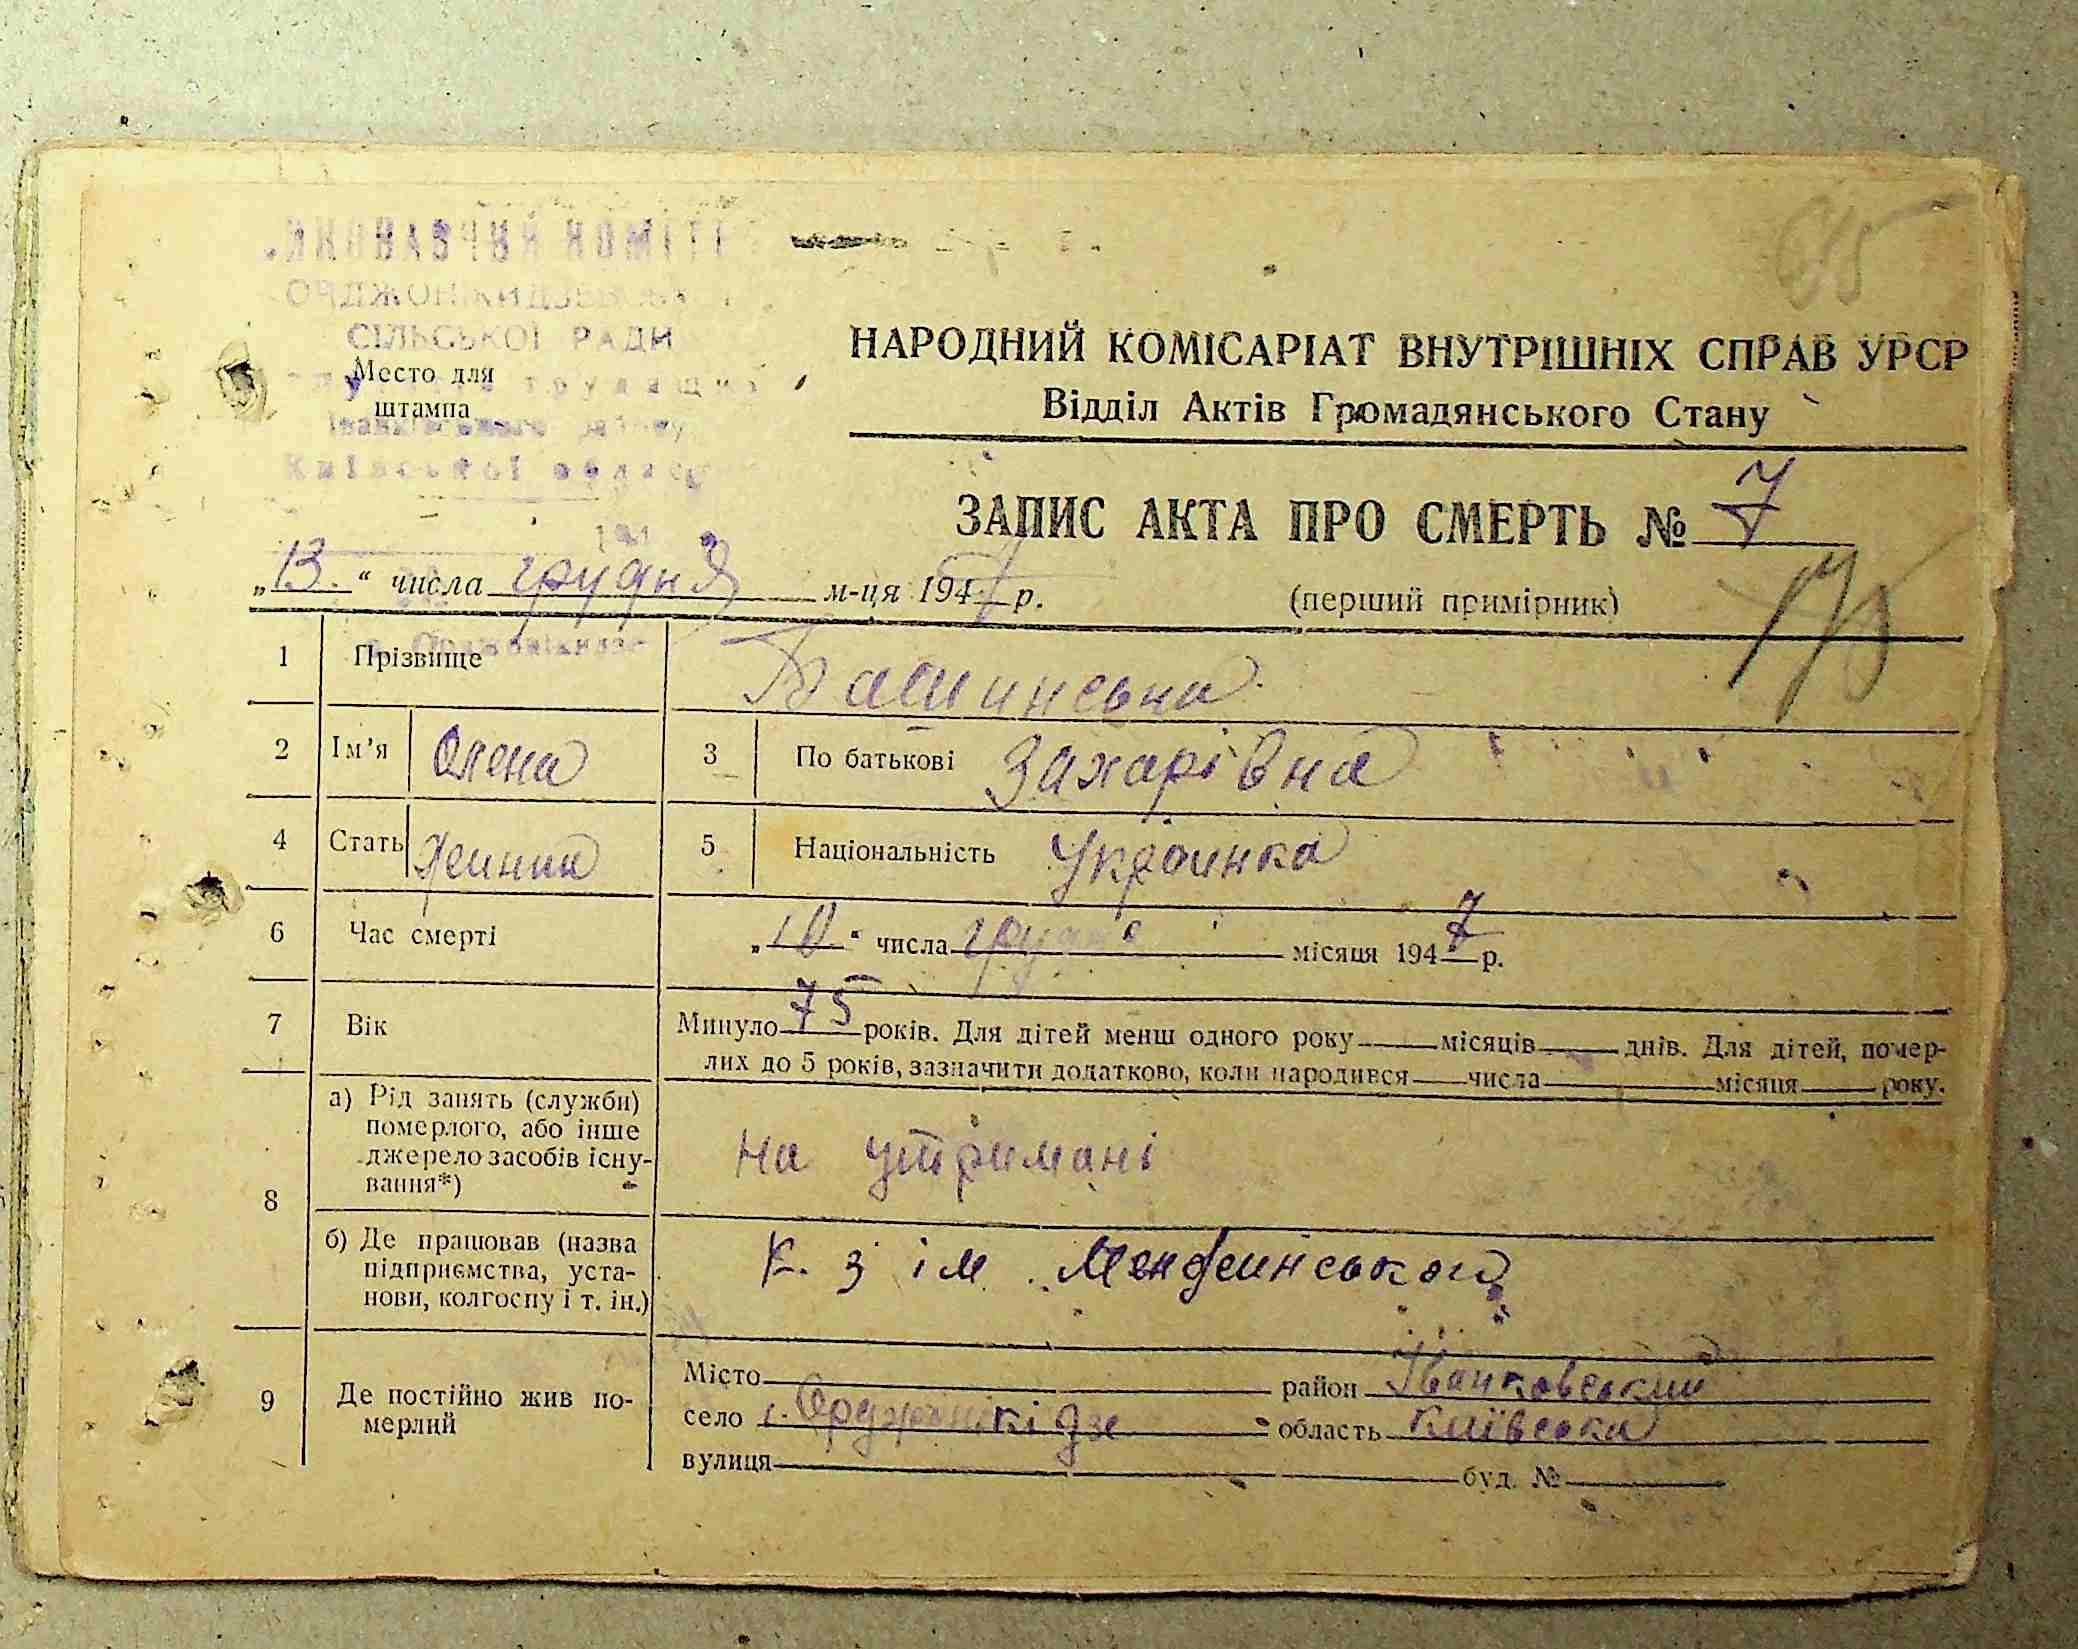 ОРДЖОНІКИДЗЕ
СІЛЬСЬКОЇ РАДИ
Место для
штампа
Київської
НАРОДНИЙ КОМІСАРІАТ ВНУТРІШНІХ СПРАВ УРСР
Відділ Актів Громадянського Стану
ЗАПИС АКТА ПРО СМЕРТЬ № 7
„13.“ числа грудня м-ця 1947 р.
(перший примірник)
1 Прізвище
2 Ім'я Олена 3 По батькові Захарівна
4 Стать 5 Національність Українка
6 Час смерті „10“ числа грудня місяця 1947 р.
7 Вік Минуло 75 років. Для дітей менш одного року місяців днів. Для дітей, помер-
лих до 5 років, зазначити додатково, коли народився числа місяця року.
8 а) Рід занять (служби)
померлого, або інше
джерело засобів існу-
вання*)
на утримані
б) Де працював (назва
підприємства, уста-
нови, колгоспу і т. ін.)
К. з ім. Менжинського
9 Де постійно жив по-
мерлий
Місто район Іванковський
село с. Орджонікідзе область Київська
вулиця буд. №